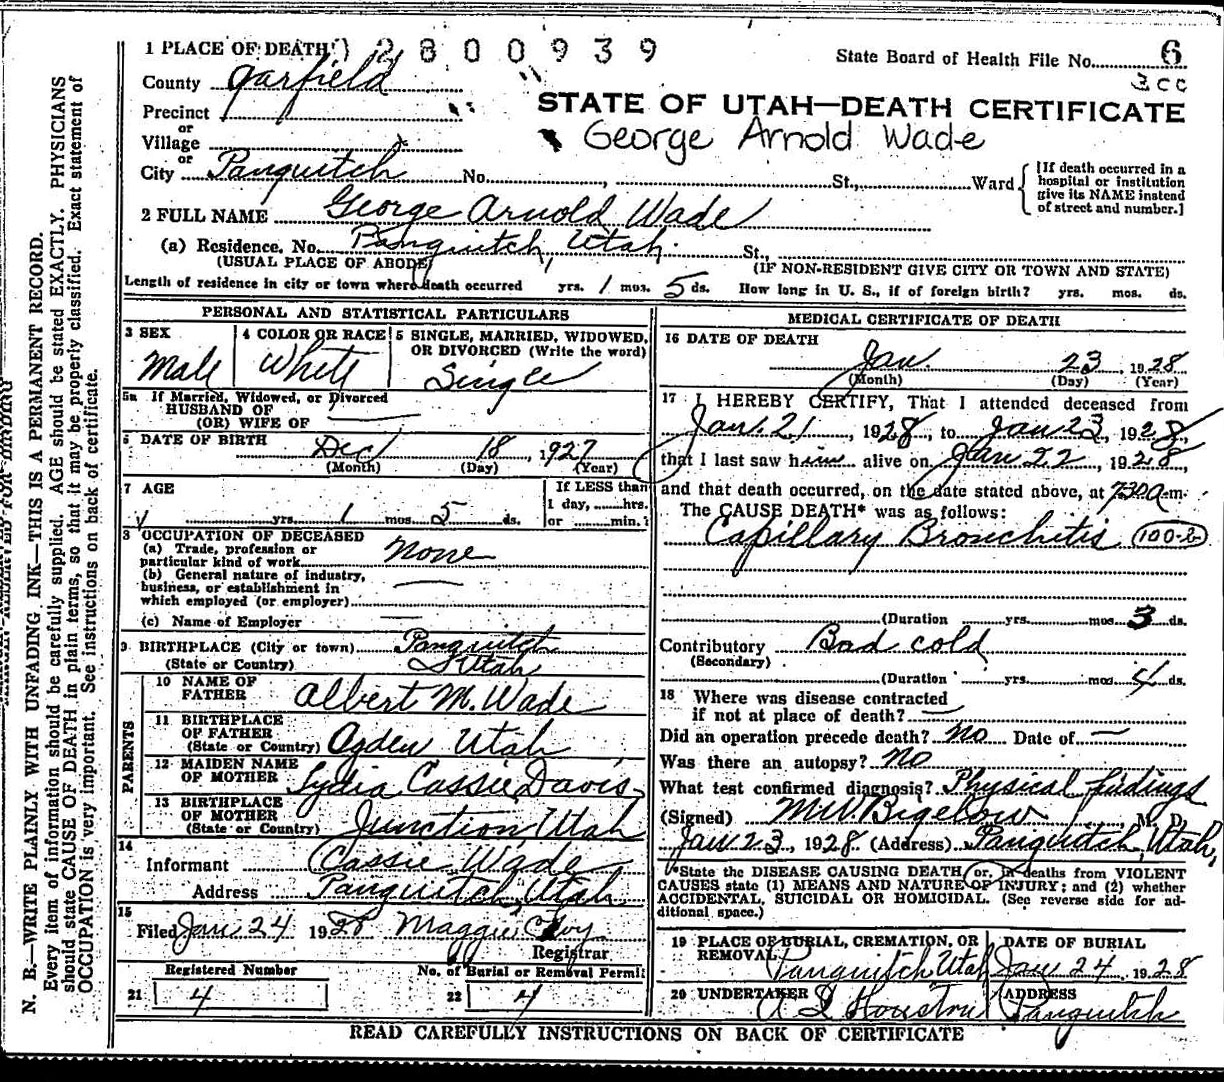 1 PLACE OF DEATH 02800939
State Board of Health File No. 6
3cc
County Garfield
STATE OF UTAH—DEATH CERTIFICATE
Precinct
or
Village
George Arnold Wade
or
City Panguitch No. , St., Ward
[If death occurred in a
hospital or institution
give its NAME instead
of street and number.]
2 FULL NAME George Arnold Wade
(a) Residence. No. Panguitch, Utah. St.,
(USUAL PLACE OF ABODE)
(IF NON-RESIDENT GIVE CITY OR TOWN AND STATE)
Length of residence in city or town where death occurred yrs. 1 mos. 5 ds. How long in U. S., if of foreign birth? yrs. mos. ds.
PERSONAL AND STATISTICAL PARTICULARS
3 SEX
Male
4 COLOR OR RACE
White
5 SINGLE, MARRIED, WIDOWED,
OR DIVORCED (Write the word)
Single
5a If Married, Widowed, or Divorced
HUSBAND OF
(OR) WIFE OF
6 DATE OF BIRTH
Dec 18 1927
(Month) (Day) (Year)
7 AGE
yrs. 1 mos. 5 ds.
If LESS than
1 day, hrs.
or min.?
8 OCCUPATION OF DECEASED
(a) Trade, profession or
particular kind of work None
(b) General nature of industry,
business, or establishment in
which employed (or employer)
(c) Name of Employer
9 BIRTHPLACE (City or town) Panguitch
(State or Country) Utah
PARENTS
10 NAME OF
FATHER Albert M. Wade
11 BIRTHPLACE
OF FATHER
(State or Country) Ogden Utah
12 MAIDEN NAME
OF MOTHER Lydia Cassie Davis
13 BIRTHPLACE
OF MOTHER
(State or Country) Junction, Utah
14
Informant Cassie Wade
Address Panguitch, Utah
15
Filed Jan 24 1928 Maggie
Registrar
Registered Number
21 4
No. of Burial or Removal Permit
22 4
MEDICAL CERTIFICATE OF DEATH
16 DATE OF DEATH
Jan. 23, 1928
(Month) (Day) (Year)
17 I HEREBY CERTIFY, That I attended deceased from
Jan. 21, 1928, to Jan 23, 1928,
that I last saw him alive on Jan 22, 1928
and that death occurred, on the date stated above, at 730a m.
The CAUSE DEATH* was as follows:
Capillary Bronchitis 100-b
(Duration yrs. mos. 3 ds.
Contributory Bad cold
(Secondary)
(Duration yrs. mos. 4 ds.
18 Where was disease contracted
if not at place of death? —
Did an operation precede death? No Date of —
Was there an autopsy? No
What test confirmed diagnosis? Physical findings
(Signed) M.W. Bigelow, M. D.
Jan 23, 1928 (Address) Panguitch, Utah,
*State the DISEASE CAUSING DEATH or, in deaths from VIOLENT
CAUSES state (1) MEANS AND NATURE OF INJURY; and (2) whether
ACCIDENTAL, SUICIDAL OR HOMICIDAL. (See reverse side for ad-
ditional space.)
19 PLACE OF BURIAL, CREMATION, OR
REMOVAL
Panguitch Utah
DATE OF BURIAL
Jan 24 1928
20 UNDERTAKER
Houston
ADDRESS
Panguitch
READ CAREFULLY INSTRUCTIONS ON BACK OF CERTIFICATE
N. B.—WRITE PLAINLY WITH UNFADING INK—THIS IS A PERMANENT RECORD.
Every item of information should be carefully supplied. AGE should be stated EXACTLY. PHYSICIANS
should state CAUSE OF DEATH in plain terms, so that it may be properly classified. Exact statement of
OCCUPATION is very important. See instructions on back of certificate.